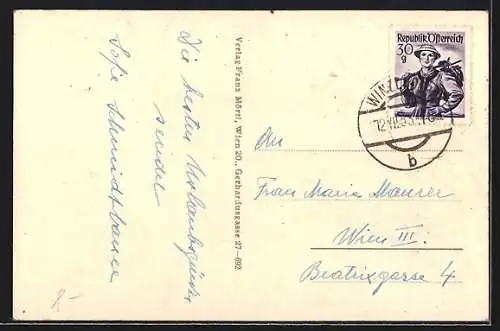 Die besten Urlaubsgrüße
sendet
Sofie Schmidtbauer
Verlag Franz Mörtl, Wien 20., Gerhardusgasse 27-692
Republik Österreich
30
g
WINZ
b
An
Frau Maria Maurer
Wien III.
Beatrixgasse 4
8-